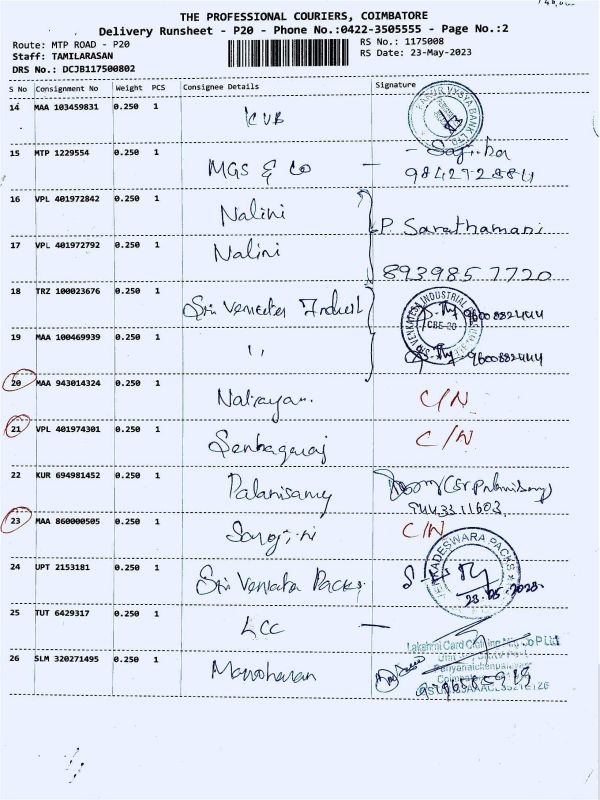 THE PROFESSIONAL COURIERS, COIMBATORE
Delivery Runsheet - P20 - Phone No.:0422-3505555 - Page No.:2
Route: MTP ROAD - P20
RS No.: 1175008
Staff: TAMILARASAN
RS Date: 23-May-2023
DRS No.: DCJB117500802
S No Consignment No Weight PCS Consignee Details Signature
14 MAA 103459831 0.250 1 KVB
15 MTP 1229554 0.250 1 MGS & Co
9842972884
16 VPL 401972842 0.250 1 Nalini P Sarathamani
17 VPL 401972792 0.250 1 Nalini 8939857720
18 TRZ 100023676 0.250 1 Sri Venkates 9600882444
CBE-20
19 MAA 100469939 0.250 1 " 9600882444
20 MAA 943014324 0.250 1 Natrayan. C/N
21 VPL 401974301 0.250 1 Senbagaraj C/N
22 KUR 694981452 0.250 1 Palanisamy
9443311603
23 MAA 860000505 0.250 1 C/N
24 UPT 2153181 0.250 1 Sri Packs.
23.05.2023
25 TUT 6429317 0.250 1 LCC
26 SLM 320271495 0.250 1 Manoharan